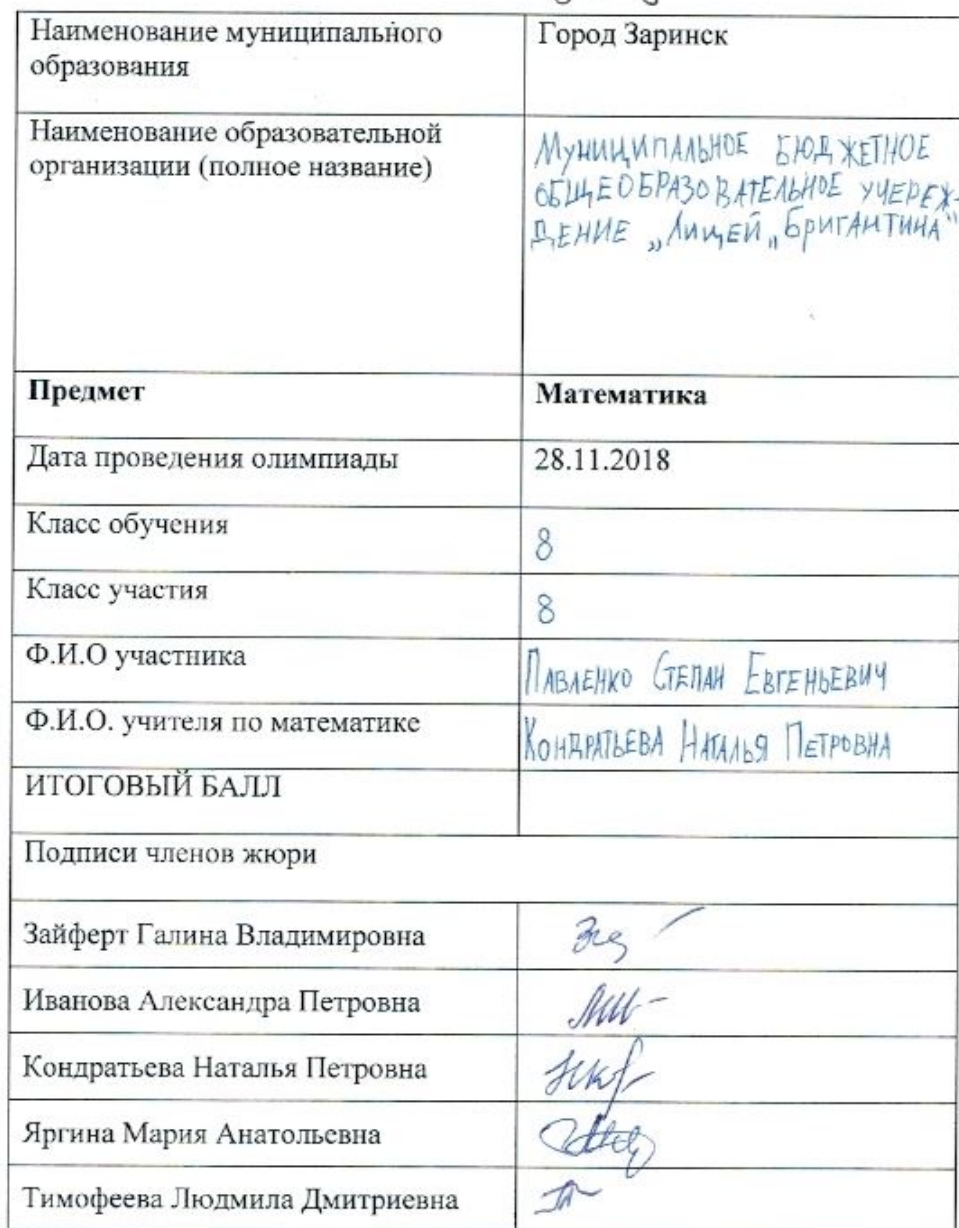 Наименование муниципального
образования
Город Заринск
Наименование образовательной
организации (полное название)
Муниципальное бюджетное
общеобразовательное учереж-
дение „Лицей „Бригантина“
Предмет
Математика
Дата проведения олимпиады
28.11.2018
Класс обучения
8
Класс участия
8
Ф.И.О участника
Павленко Степан Евгеньевич
Ф.И.О. учителя по математике
Кондратьева Наталья Петровна
ИТОГОВЫЙ БАЛЛ
Подписи членов жюри
Зайферт Галина Владимировна
Иванова Александра Петровна
Кондратьева Наталья Петровна
Яргина Мария Анатольевна
Тимофеева Людмила Дмитриевна